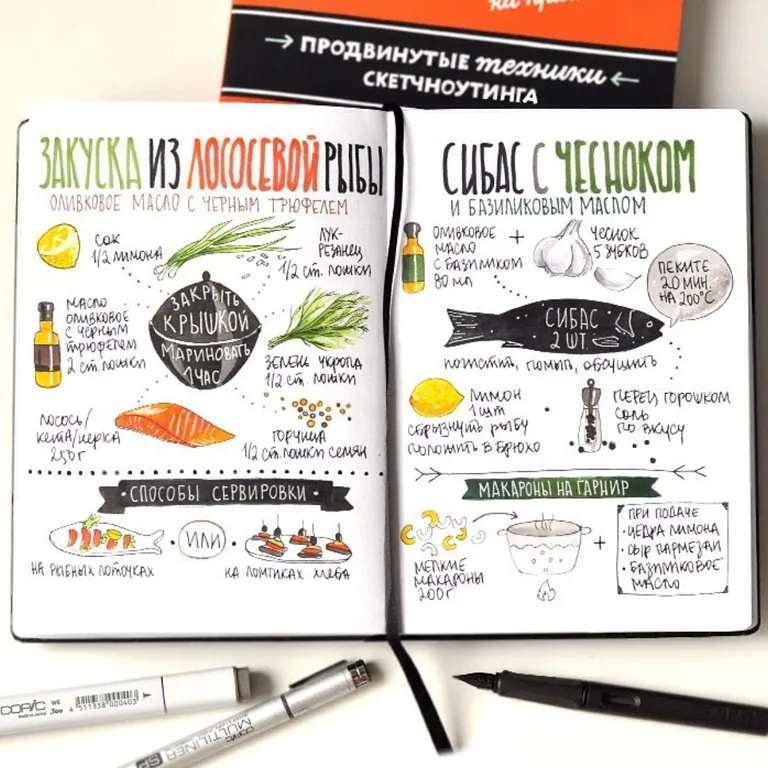 ПРОДВИНУТЫЕ техники
СКЕТЧНОУТИНГА
ЗАКУСКА ИЗ ЛОСОСЕВОЙ РЫБЫ
ОЛИВКОВОЕ МАСЛО С ЧЕРНЫМ ТРЮФЕЛЕМ
СОК
1/2 ЛИМОНА
ЛУК-
РЕЗАНЕЦ
1/2 СТ. ЛОЖКИ
МАСЛО
ОЛИВКОВОЕ
С ЧЕРНЫМ
ТРЮФЕЛЕМ
2 СТ. ЛОЖКИ
ЗАКРЫТЬ
КРЫШКОЙ
МАРИНОВАТЬ
1 ЧАС
ЗЕЛЕНЬ УКРОПА
1/2 СТ. ЛОЖКИ
ЛОСОСЬ/
КЕТА/НЕРКА
250 г
ГОРЧИЦА
1/2 СТ. ЛОЖКИ СЕМЯН
СПОСОБЫ СЕРВИРОВКИ
ИЛИ
НА РЫБНЫХ ЛОТОЧКАХ
НА ЛОМТИКАХ ХЛЕБА
СИБАС С ЧЕСНОКОМ
И БАЗИЛИКОВЫМ МАСЛОМ
ОЛИВКОВОЕ
МАСЛО
С БАЗИЛИКОМ
80 МЛ
+
ЧЕСНОК
5 ЗУБКОВ
ПЕКИТЕ
20 МИН.
НА 200°C
СИБАС
2 ШТ.
ПОЧИСТИТЬ, ПОМЫТЬ, ОБСУШИТЬ
ЛИМОН
1 ШТ
СБРЫЗНУТЬ РЫБУ
ПОЛОЖИТЬ В БРЮХО
ПЕРЕЦ ГОРОШКОМ
СОЛЬ
ПО ВКУСУ
МАКАРОНЫ НА ГАРНИР
МЕЛКИЕ
МАКАРОНЫ
200 г
+
ПРИ ПОДАЧЕ
• ЦЕДРА ЛИМОНА
• СЫР ПАРМЕЗАН
• БАЗИЛИКОВОЕ
МАСЛО
COPIC
MADE IN JAPAN
W6
.Too
4 511338 000403
COPIC
MULTILINER SP